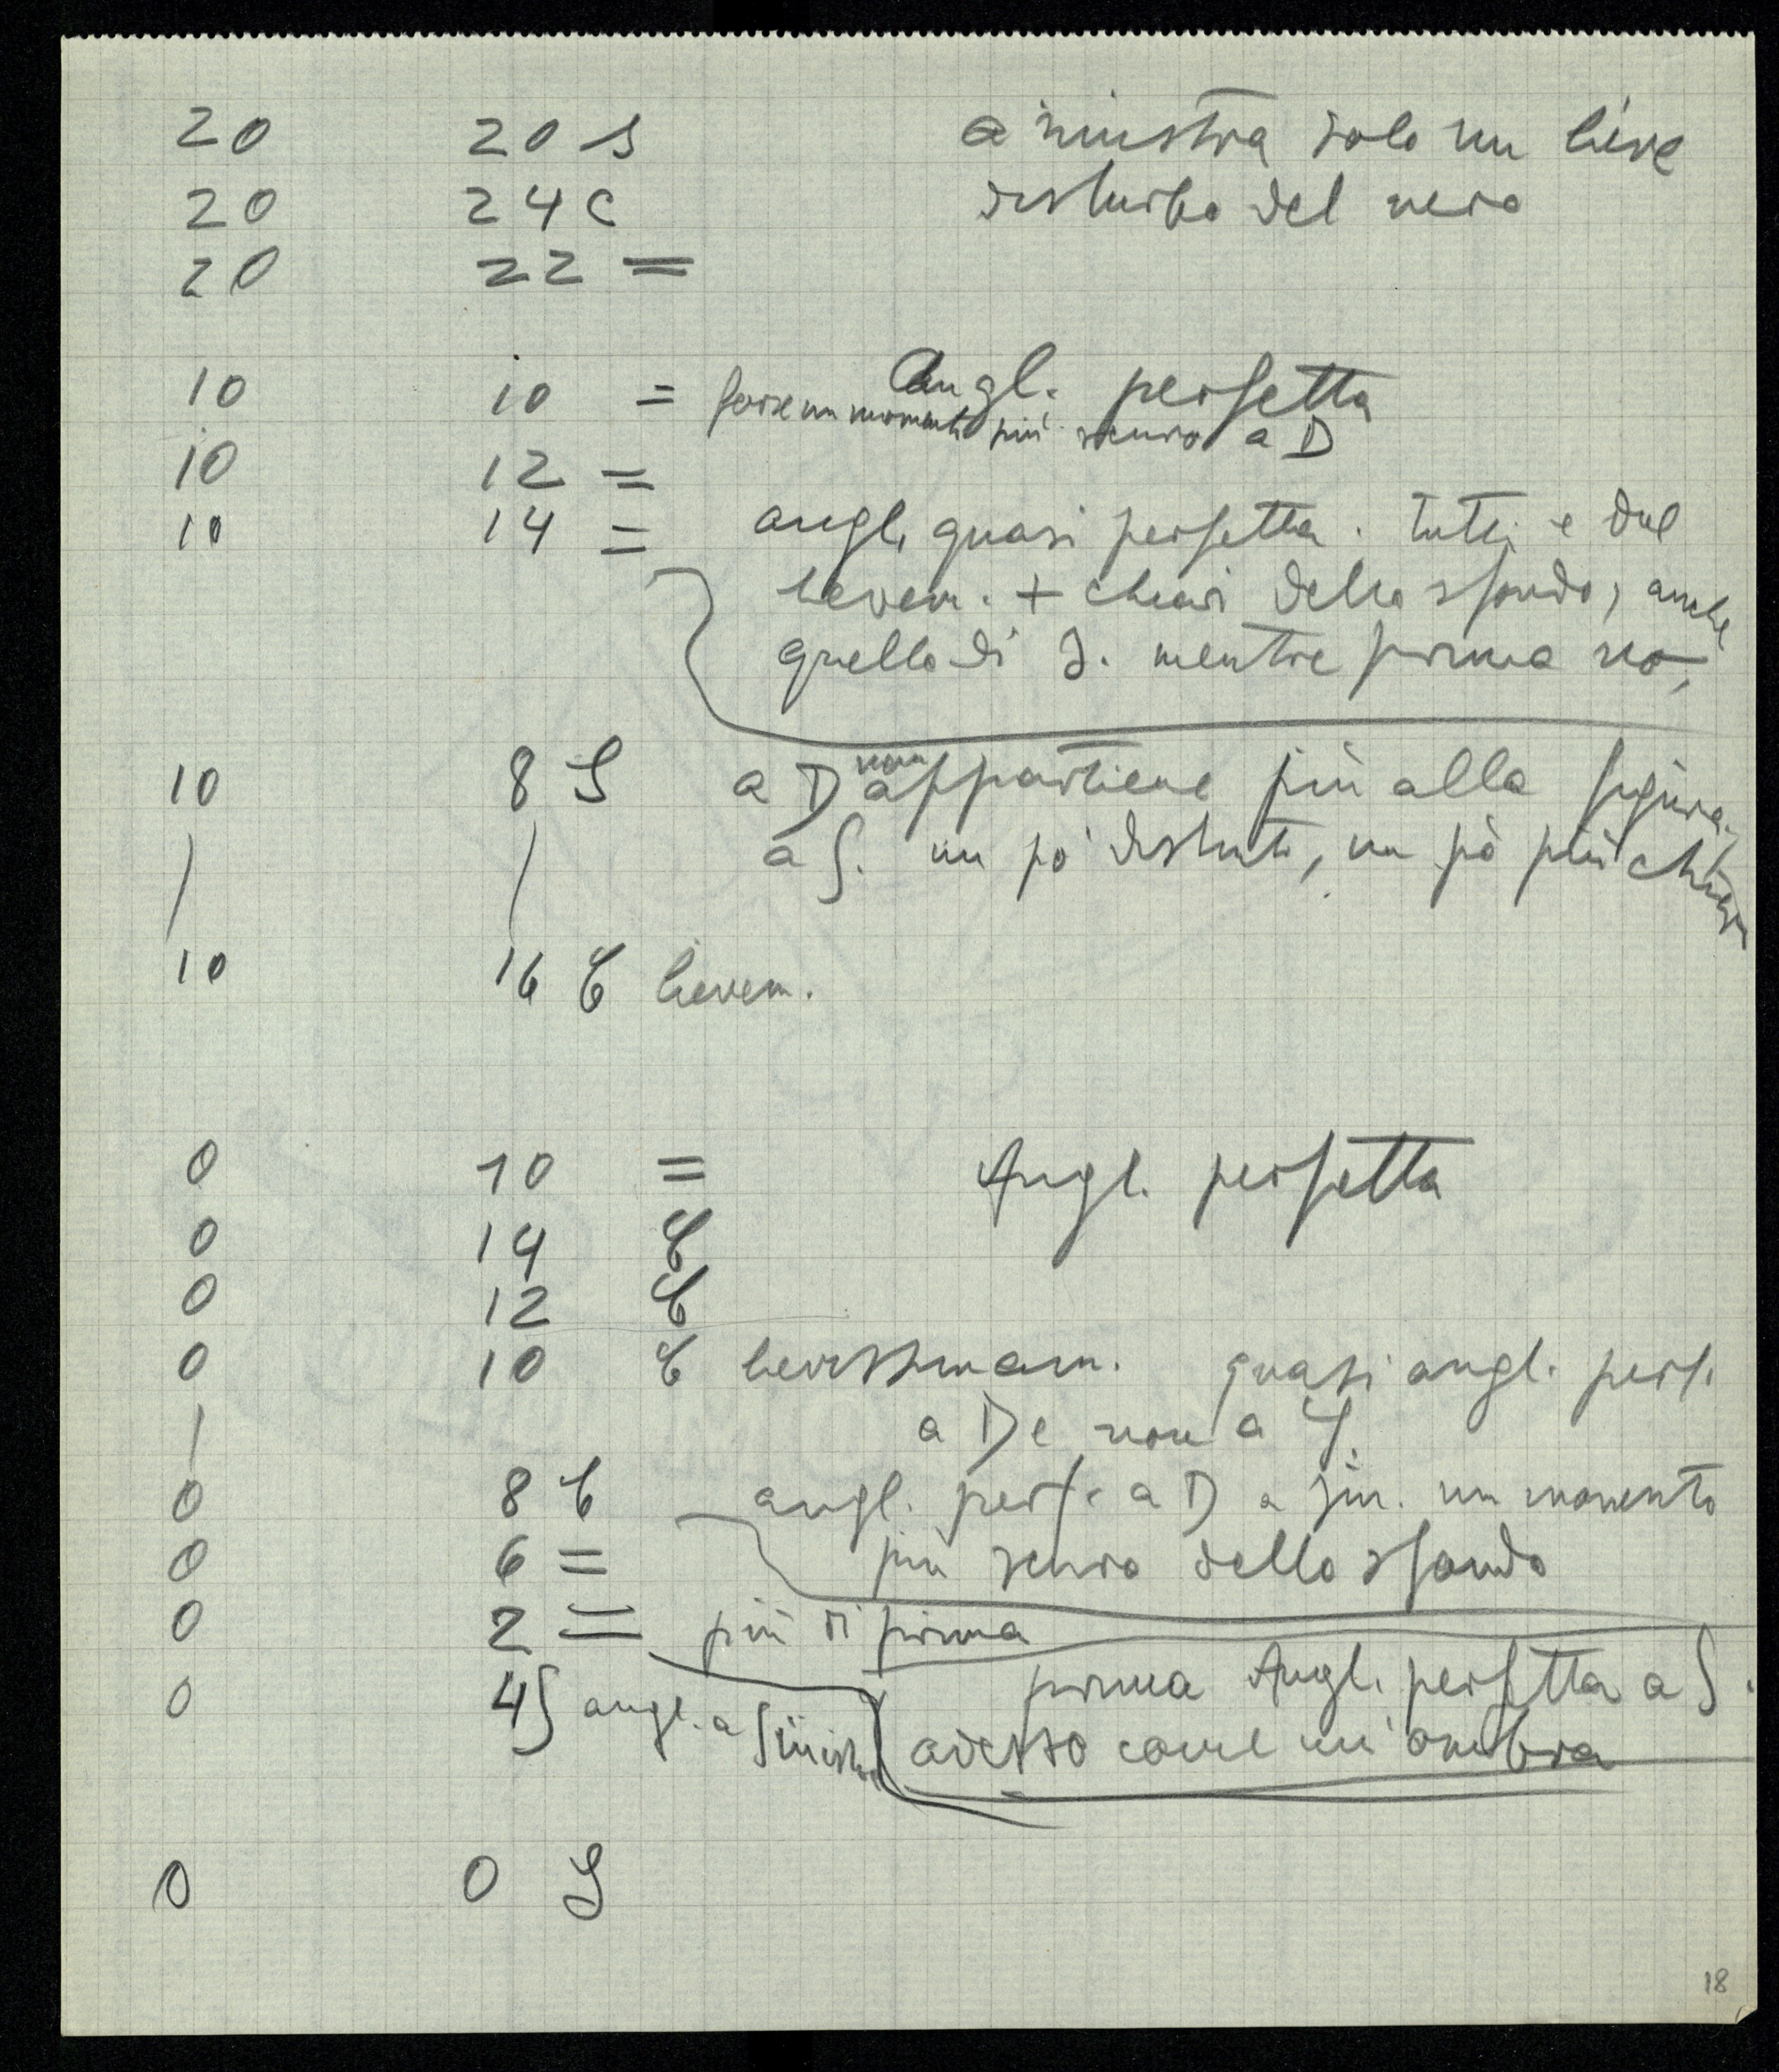 20 20 S a sinistra solo un lieve
20 24 C disturbo del nero
20 22 =
10 10 = Angl. perfetta
forse un momento più scuro a D
10 12 =
10 14 = angl. quasi perfetta. tutti e due
lievem. + chiari dello sfondo, anche
quello di S. mentre prima no,
10 8 S a D non appartiene più alla figura,
a S. un po' , un pò più chiaro
10 16 C lievem.
0 10 = Angl. perfetta
0 14 C
0 12 C
0 10 C lievissimam. quasi angl. perf.
a D e non a S.
0 8 C angl. perf. a D a sin. un momento
0 6 = più scuro dello sfondo
0 2 = più di prima
prima Angl. perfetta a S.
0 4 S angl. a Sinistra
adesso come un'ombra
0 0 S
18